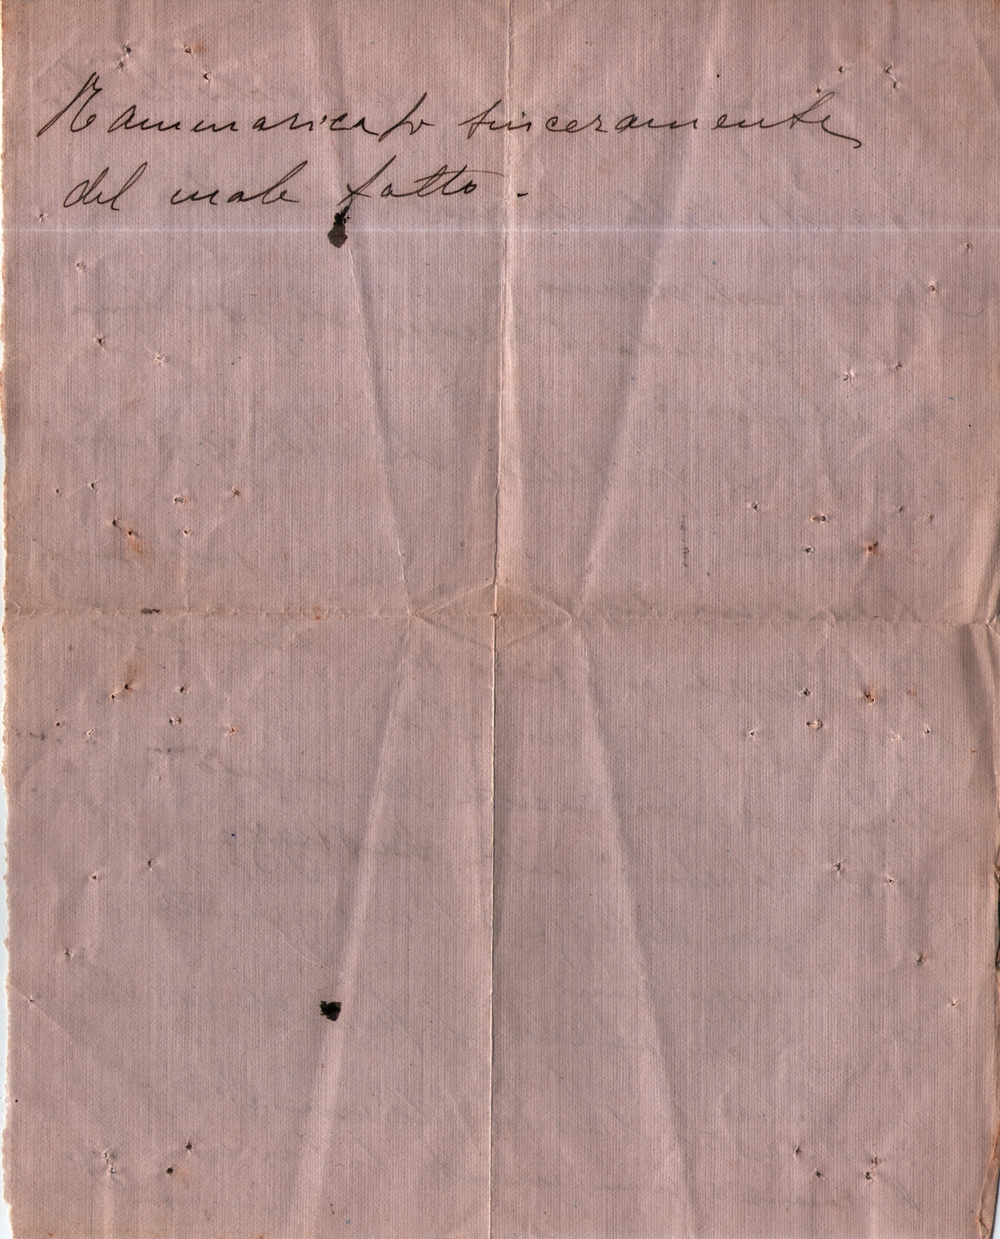 Rammaricato sinceramente
del male fatto -